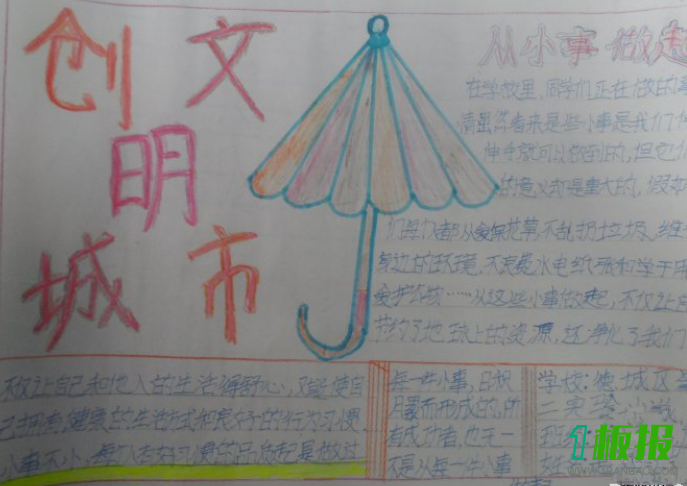 创文
明
城市
从小事做起
在学校里,同学们正在做的事
情虽然看来是些小事是我们伸
伸手就可以做到的,但它们
的意义却是重大的,假如
们每人都从爱护花草,不乱扔垃圾、维
身边的环境、不浪费水电纸张和学于用
爱护公物……从这些小事做起,不仅让
节约了地球上的资源,还净化了我们
不仅让自己和他人的生活得舒心,又能使自
己拥有健康的生活方式和良好的行为习惯,
小事不小,每个人良好习惯的
每一件小事,日积
月累而形成的,所
有成功者,也无一
不是从每一件小事
学校:德城区
二实验小学
班
板报